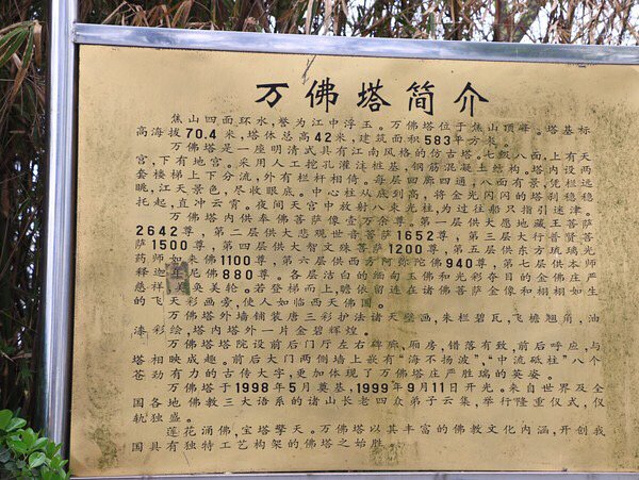 万佛塔简介
焦山四面环水，誉为江中浮玉。万佛塔位于焦山顶峰。塔基标
高海拔70.4米，塔体总高42米，建筑面积583平方米。
万佛塔是一座明清式具有江南风格的仿古塔。七级八面，上有天
宫，下有地宫。采用人工挖孔灌注桩基，钢筋混凝土结构。塔内设两
套楼梯上下分流，外有栏杆相倚。每层四廊四通，八面有景，凭栏远
眺，江天景色，尽收眼底。中心柱从底到高，将金光闪闪的塔刹稳稳
托起，直冲云霄。夜间天宫中放射八束光柱，为过往船只指引迷津。
万佛塔内供奉佛菩萨像壹万余尊。第一层供大愿地藏王菩萨
2642尊，第二层供大悲观世音菩萨1652尊，第三层大行普贤菩
萨1500尊，第四层供大智文殊菩萨1200尊，第五层供东方琉璃光
药师如来佛1100尊，第六层供西方阿弥陀佛940尊，第七层供本师
释迦牟尼佛880尊。各层洁白的缅甸玉佛和光彩夺目的金佛庄严
慈祥，美奂美轮。若登梯而上，瞻依留连在诸佛菩萨金像和栩栩如生
的飞天彩画旁，使人如临西天佛国。
万佛塔外墙铺装唐三彩护法诸天壁画，朱栏碧瓦，飞檐翘角，油
漆彩绘，塔内塔外一片金碧辉煌。
万佛塔塔院设前后门厅左右碑廊，厢房，错落有致，前后呼应，与
塔相映成趣。前后大门两侧墙上嵌有“海不扬波”，“中流砥柱”八个
苍劲有力的古传大字，更加体现了万佛塔庄严胜瑞的英姿。
万佛塔于1998年5月奠基，1999年9月11日开光。来自世界及全
国各地佛教三大语系的诸山长老四众弟子云集，举行隆重仪式，仪
轨独盛。
莲花涌佛，宝塔擎天。万佛塔以其丰富的佛教文化内涵，开创我
国具有独特工艺构架的佛塔之始胜。